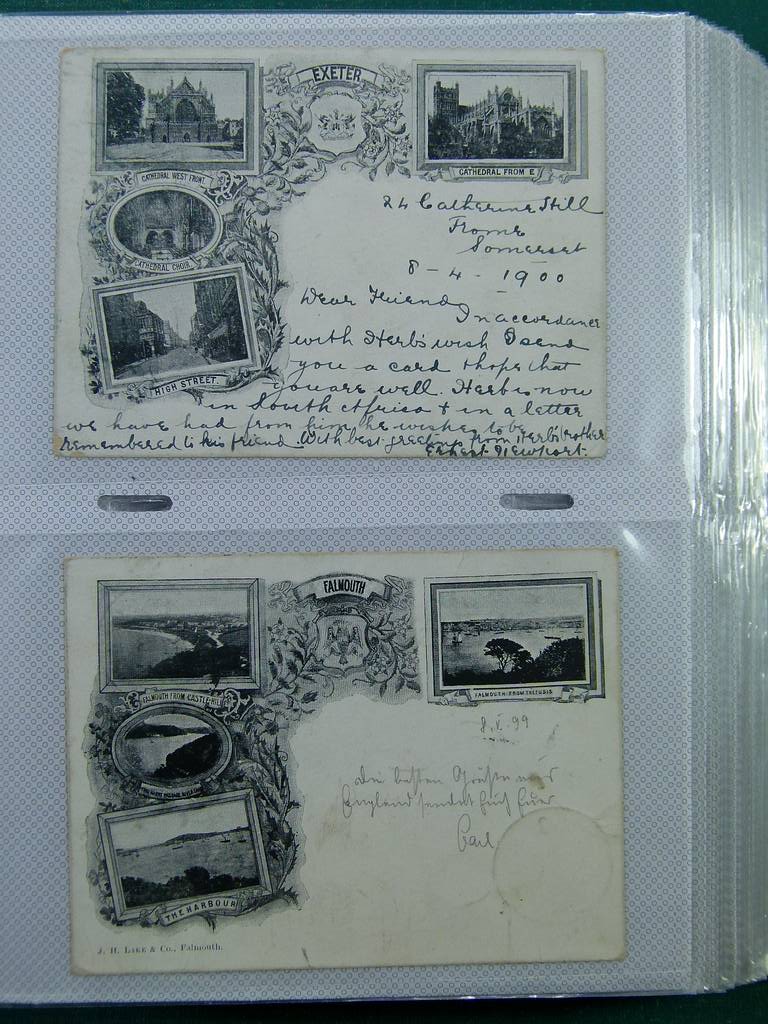 EXETER
CATHEDRAL WEST FRONT.
CATHEDRAL FROM E
CATHEDRAL CHOIR.
HIGH STREET.
24 Catherine Hill
Frome
Somerset
8 - 4 - 1900
Dear Friend
In accordance
with Herb's wish I send
you a card & hope that
you are well. Herb is now
in South Africa & in a letter
we have had from him he wishes to be
remembered to his friend. With best greetings from Herb's brother
Ernest Newport.
FALMOUTH
FALMOUTH FROM CASTLE HILL
FALMOUTH FROM TREFUSIS
THE HARBOUR
8.V.99
Die besten Grüße aus
England sendet Euch Euer
Carl
J. H. LAKE & Co., Falmouth.